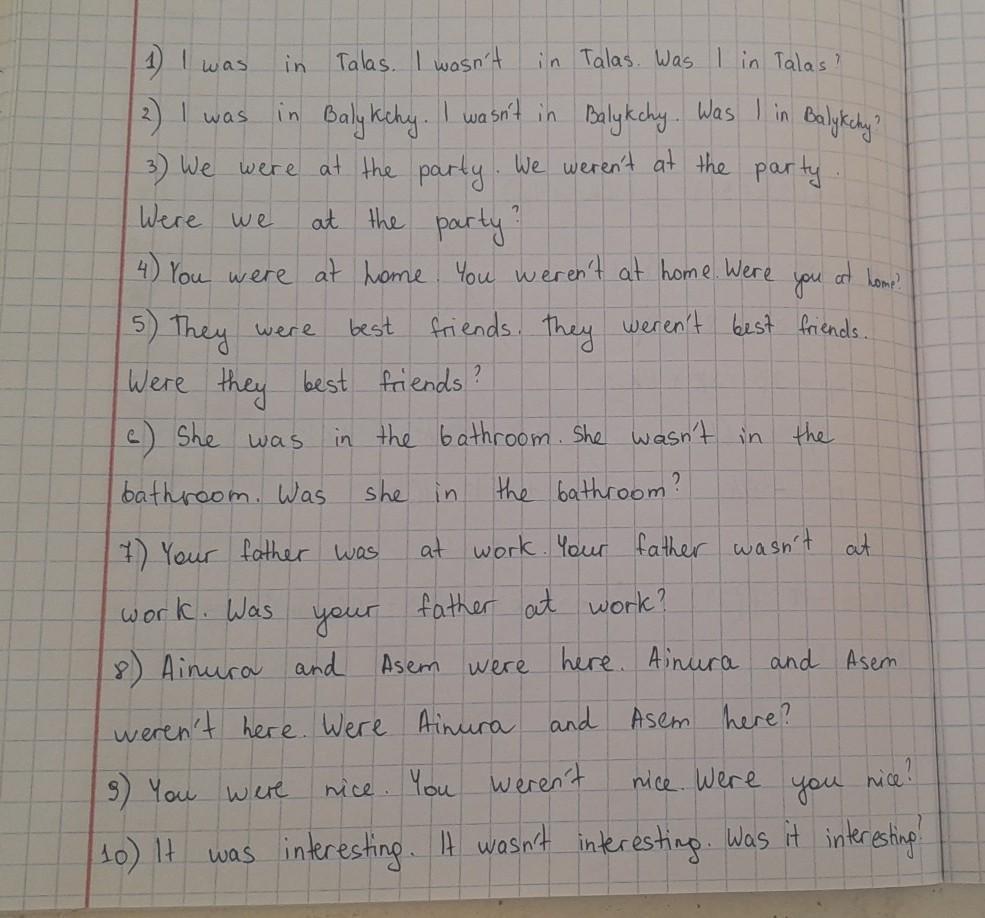 1) I was in Talas. I wasn't in Talas. Was I in Talas?
2) I was in Balykchy. I wasn't in Balykchy. Was I in Balykchy?
3) We were at the party. We weren't at the party.
Were we at the party?
4) You were at home. You weren't at home. Were you at home?
5) They were best friends. They weren't best friends.
Were they best friends?
6) She was in the bathroom. She wasn't in the
bathroom. Was she in the bathroom?
7) Your father was at work. Your father wasn't at
work. Was your father at work?
8) Ainura and Asem were here. Ainura and Asem
weren't here. Were Ainura and Asem here?
9) You were nice. You weren't nice. Were you nice?
10) It was interesting. It wasn't interesting. Was it interesting?